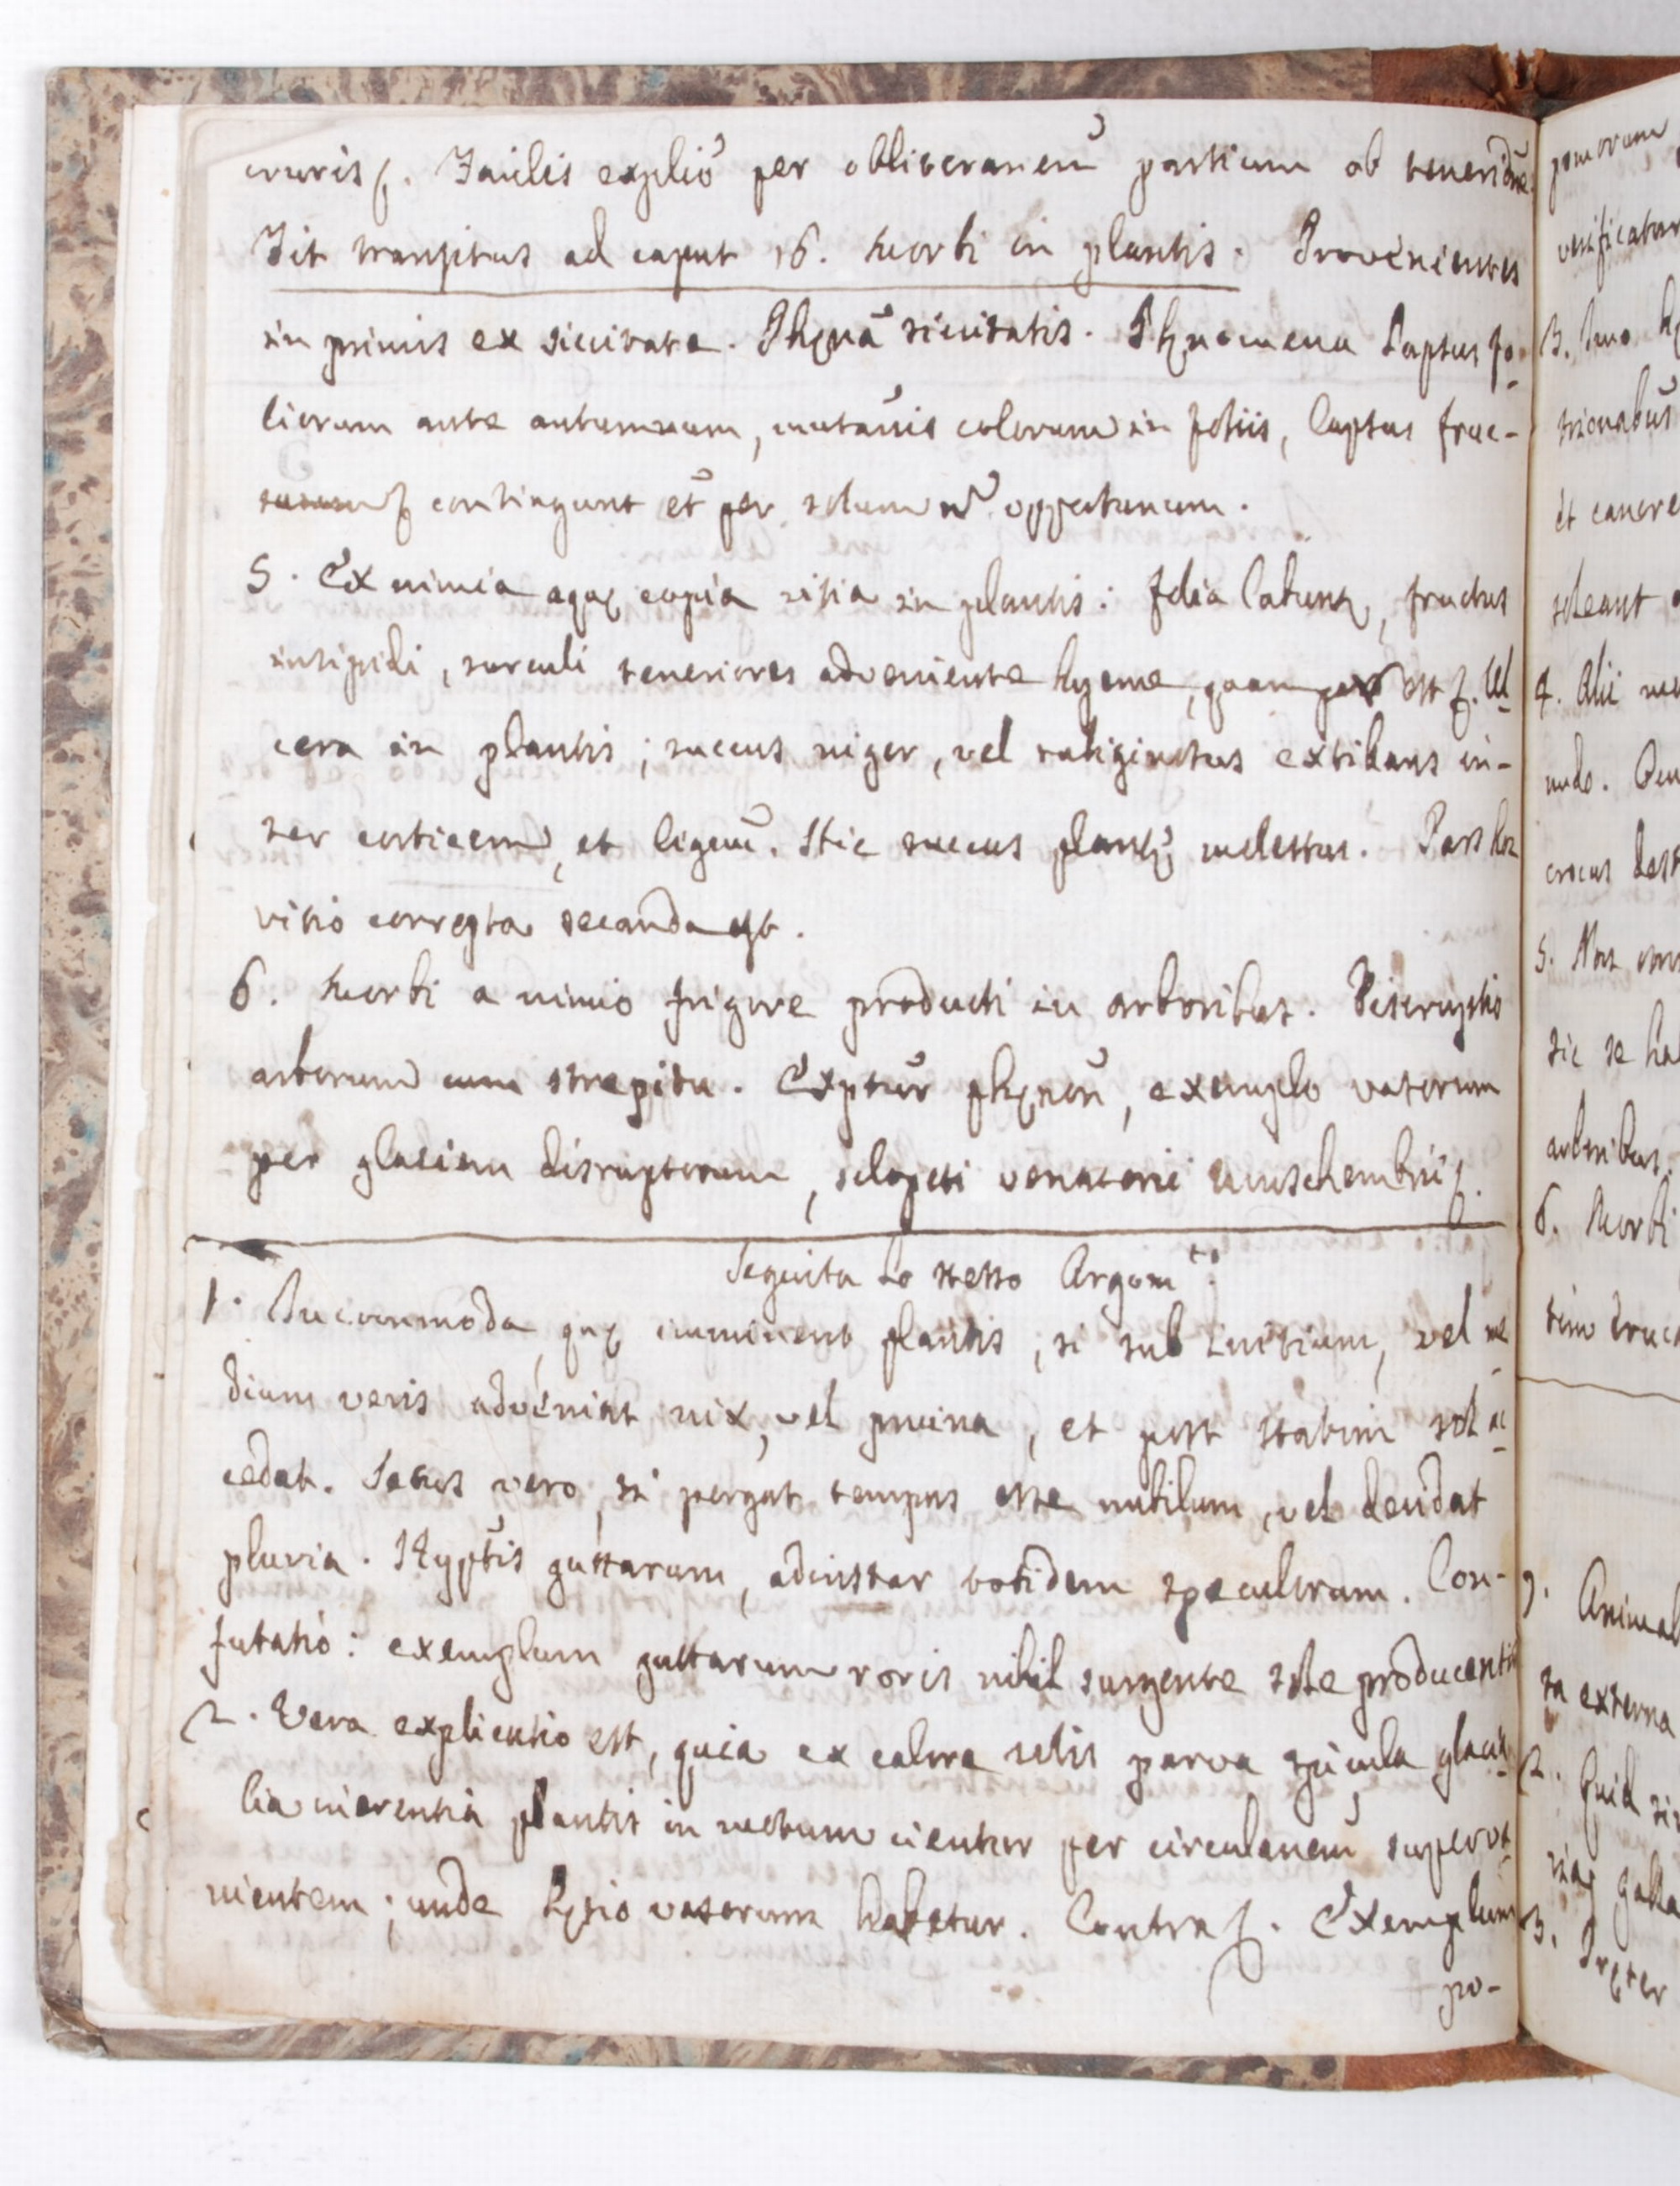 cruris &. Facilis explio per obliteranem partium ob teneridne.
Fit transitus ad caput 16. Morbi in plantis. Provenientes
in primis ex siccitate. Phęna siccitatis. Phęnomena Laptus fo-
liorum ante autumnum, mutanis colorum in foliis, laptus fruc-
tuum & contingunt et per solum n opportunum.
5. Ex nimia aquę copia vitia in plantis: folia labunt, fructus
insipidi, surculi teneriores adveniente hyeme, quam par est &. Ul-
cera in plantis; succus niger, vel rubiginosus extillans in-
ter corticem, et lignu. Hic succus plantę molestus. Pars hoc
vitio correpta secanda est.
6. Morbi a nimio frigore producti in arboribus. Disruptio
arborum cum strepitu. Exptur phęnon, exemplo vasorum
per glaciem disruptorum, sclopeti venatorii Muschembrii &.
Seguita Lo stesso Argom.to
1. Incommoda, quę imminent plantis, si sub initium, vel me-
dium veris adveniat nix, vel pruina, et post statim sol ac-
cedat. Secus vero, si pergat tempus esse nubilum, vel decidat
pluvia. Hyptis guttarum, adinstar totidem speculorum. Con-
futatio: exemplum guttarum roris nihil surgente sole producentis
2. Vera explicatio est, quia ex calore solis parva spicula glacia-
lia inerentia plantis in motum cientur per circulanem superve-
nientem; unde lęsio vasorum habetur. Contra &. Exemplum
po-
pomorum
verificatur
3. Imo
trionabus
et cancre
soleant
4. Alii
nudo.
crocus
5. Non
sic se ha
arboribus.
6. Morbi
1. Animal
ta externa
2. Quid
galla
3. Pręter